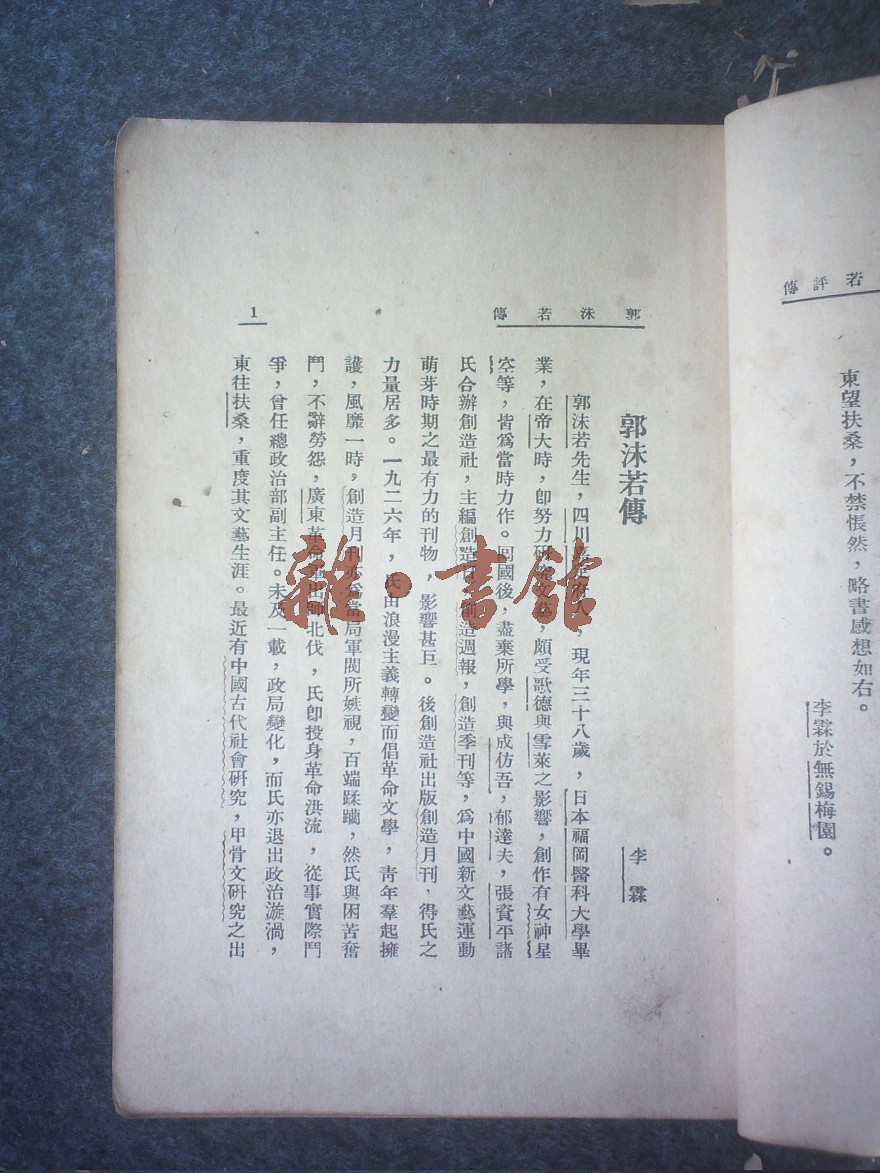 若評傳
東望扶桑，不禁悵然，略書感想如右。
李霖於無錫梅園。
郭沫若傳
郭沫若傳
李霖
郭沫若先生，四川嘉定府人，現年三十八歲，日本福岡醫科大學畢
業，在帝大時，卽努力研究文藝，頗受歌德與雪萊之影響，創作有女神星
空等，皆爲當時力作。囘國後，盡棄所學，與成仿吾，郁達夫，張資平諸
氏合辦創造社，主編創造日，創造週報，創造季刊等，爲中國新文藝運動
萌芽時期之最有力的刊物，影響甚巨。後創造社出版創造月刊，得氏之
力量居多。一九二六年，氏由浪漫主義轉變而倡革命文學，靑年羣起擁
護，風靡一時，創造月刊亦爲當局軍閥所嫉視，百端蹂躪，然氏與困苦奮
鬥，不辭勞怨，廣東革命軍出師北伐，氏卽投身革命洪流，從事實際鬥
爭，曾任總政治部副主任。未及一載，政局變化，而氏亦退出政治漩渦，
東往扶桑，重度其文藝生涯。最近有中國古代社會硏究，甲骨文硏究之出
1
雜·書館